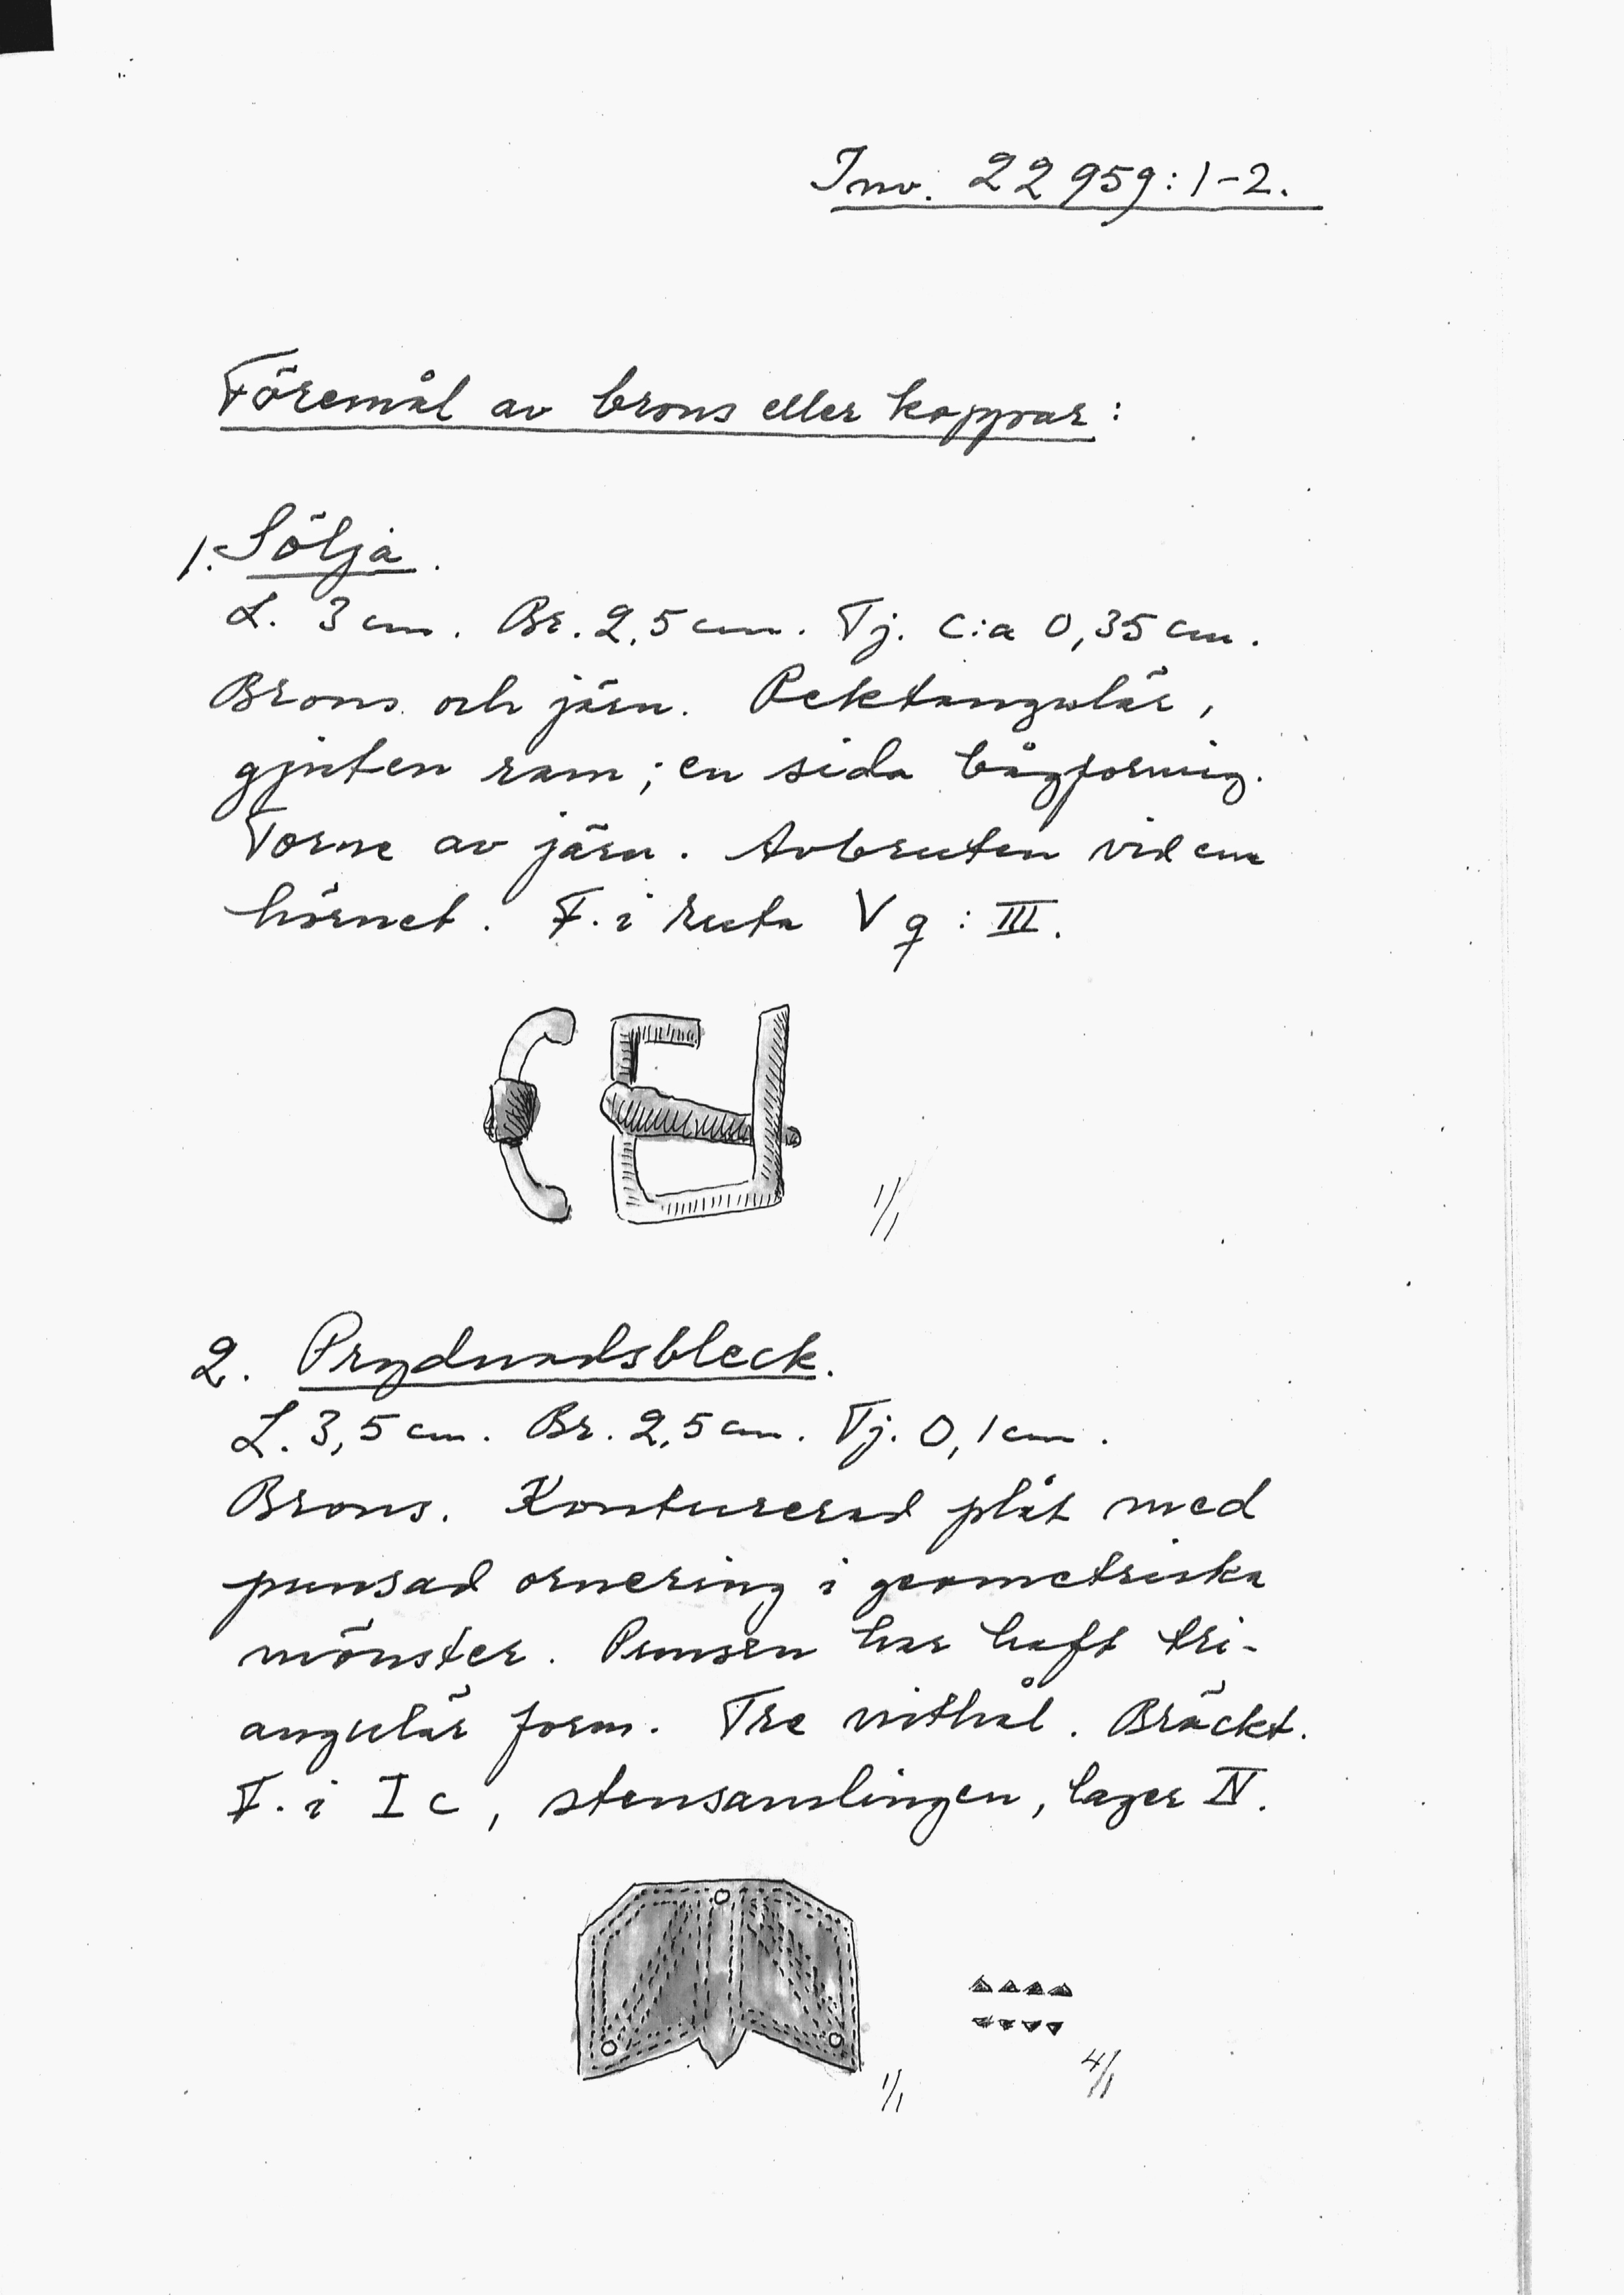 Inv. 22959:1-2.
Föremål av brons eller koppar:
1. Sölja.
L. 3 cm. Br. 2,5 cm. Tj. c:a 0,35 cm.
Brons och järn. Rektangulär,
gjuten ram; en sida bågformig.
Torne av järn. Avbruten vid ena
hörnet. F. i ruta V q : III.
1/1
2. Prydnadsbleck.
L. 3,5 cm. Br. 2,5 cm. Tj. 0,1 cm.
Brons. Konturerad plåt med
punsad ornering i geometriska
mönster. Punsen har haft tri-
angulär form. Tre nithål. Bräckt.
F. i I c, stensamlingen, lager IV.
1/1
4/1